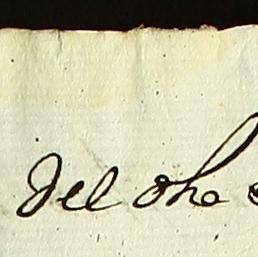 del oho